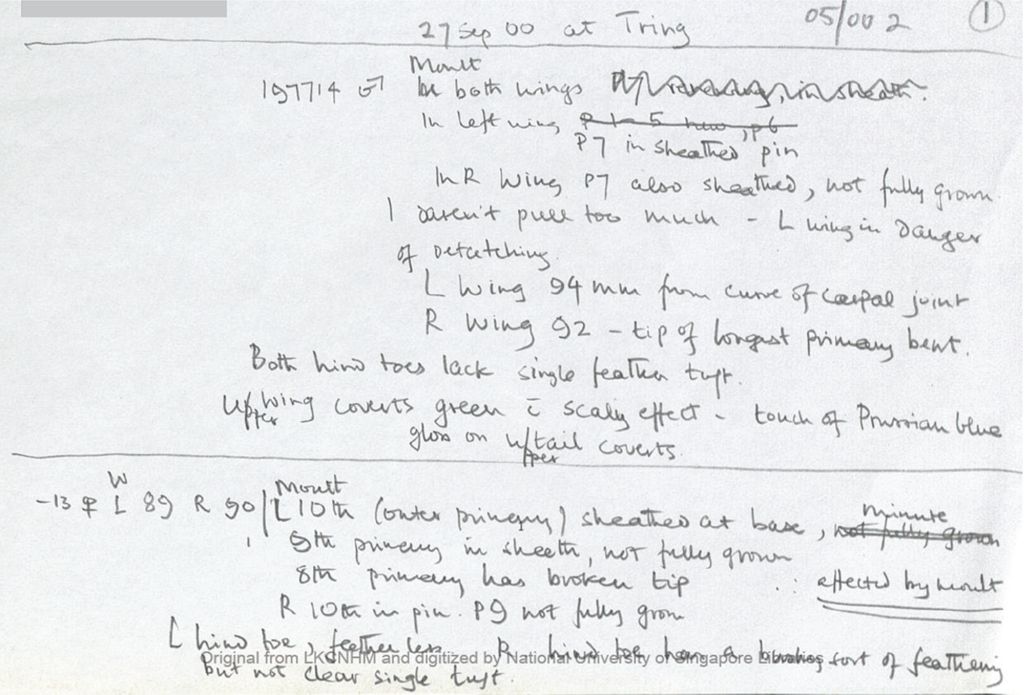 27 Sep 00 at Tring 05/002 1
Moult
197714 ♂ In both wings in sheath.
In left wing P 1-5 new, p6
P7 in sheathed pin
In R Wing P7 also sheathed, not fully grown
I daren't pull too much - L wing in danger
of detatching.
L Wing 94 mm from curve of carpal joint
R Wing 92 - tip of longest primary bent.
Both hind toes lack single feather tuft.
Upper wing coverts green c̄ scaly effect - touch of Prussian blue
gloss on upper tail coverts.
W Moult minute
-13 ♀ L 89 R 90 / L 10th (outer primary) sheathed at base, not fully grown
9th primary in sheath, not fully grown
8th primary has broken tip ∴ effected by moult
R 10th in pin. P9 not fully grown
L hind toe, featherless R hind toe has a sort of feathering
but not clear single tuft.
Original from LKCNHM and digitized by National University of Singapore Libraries